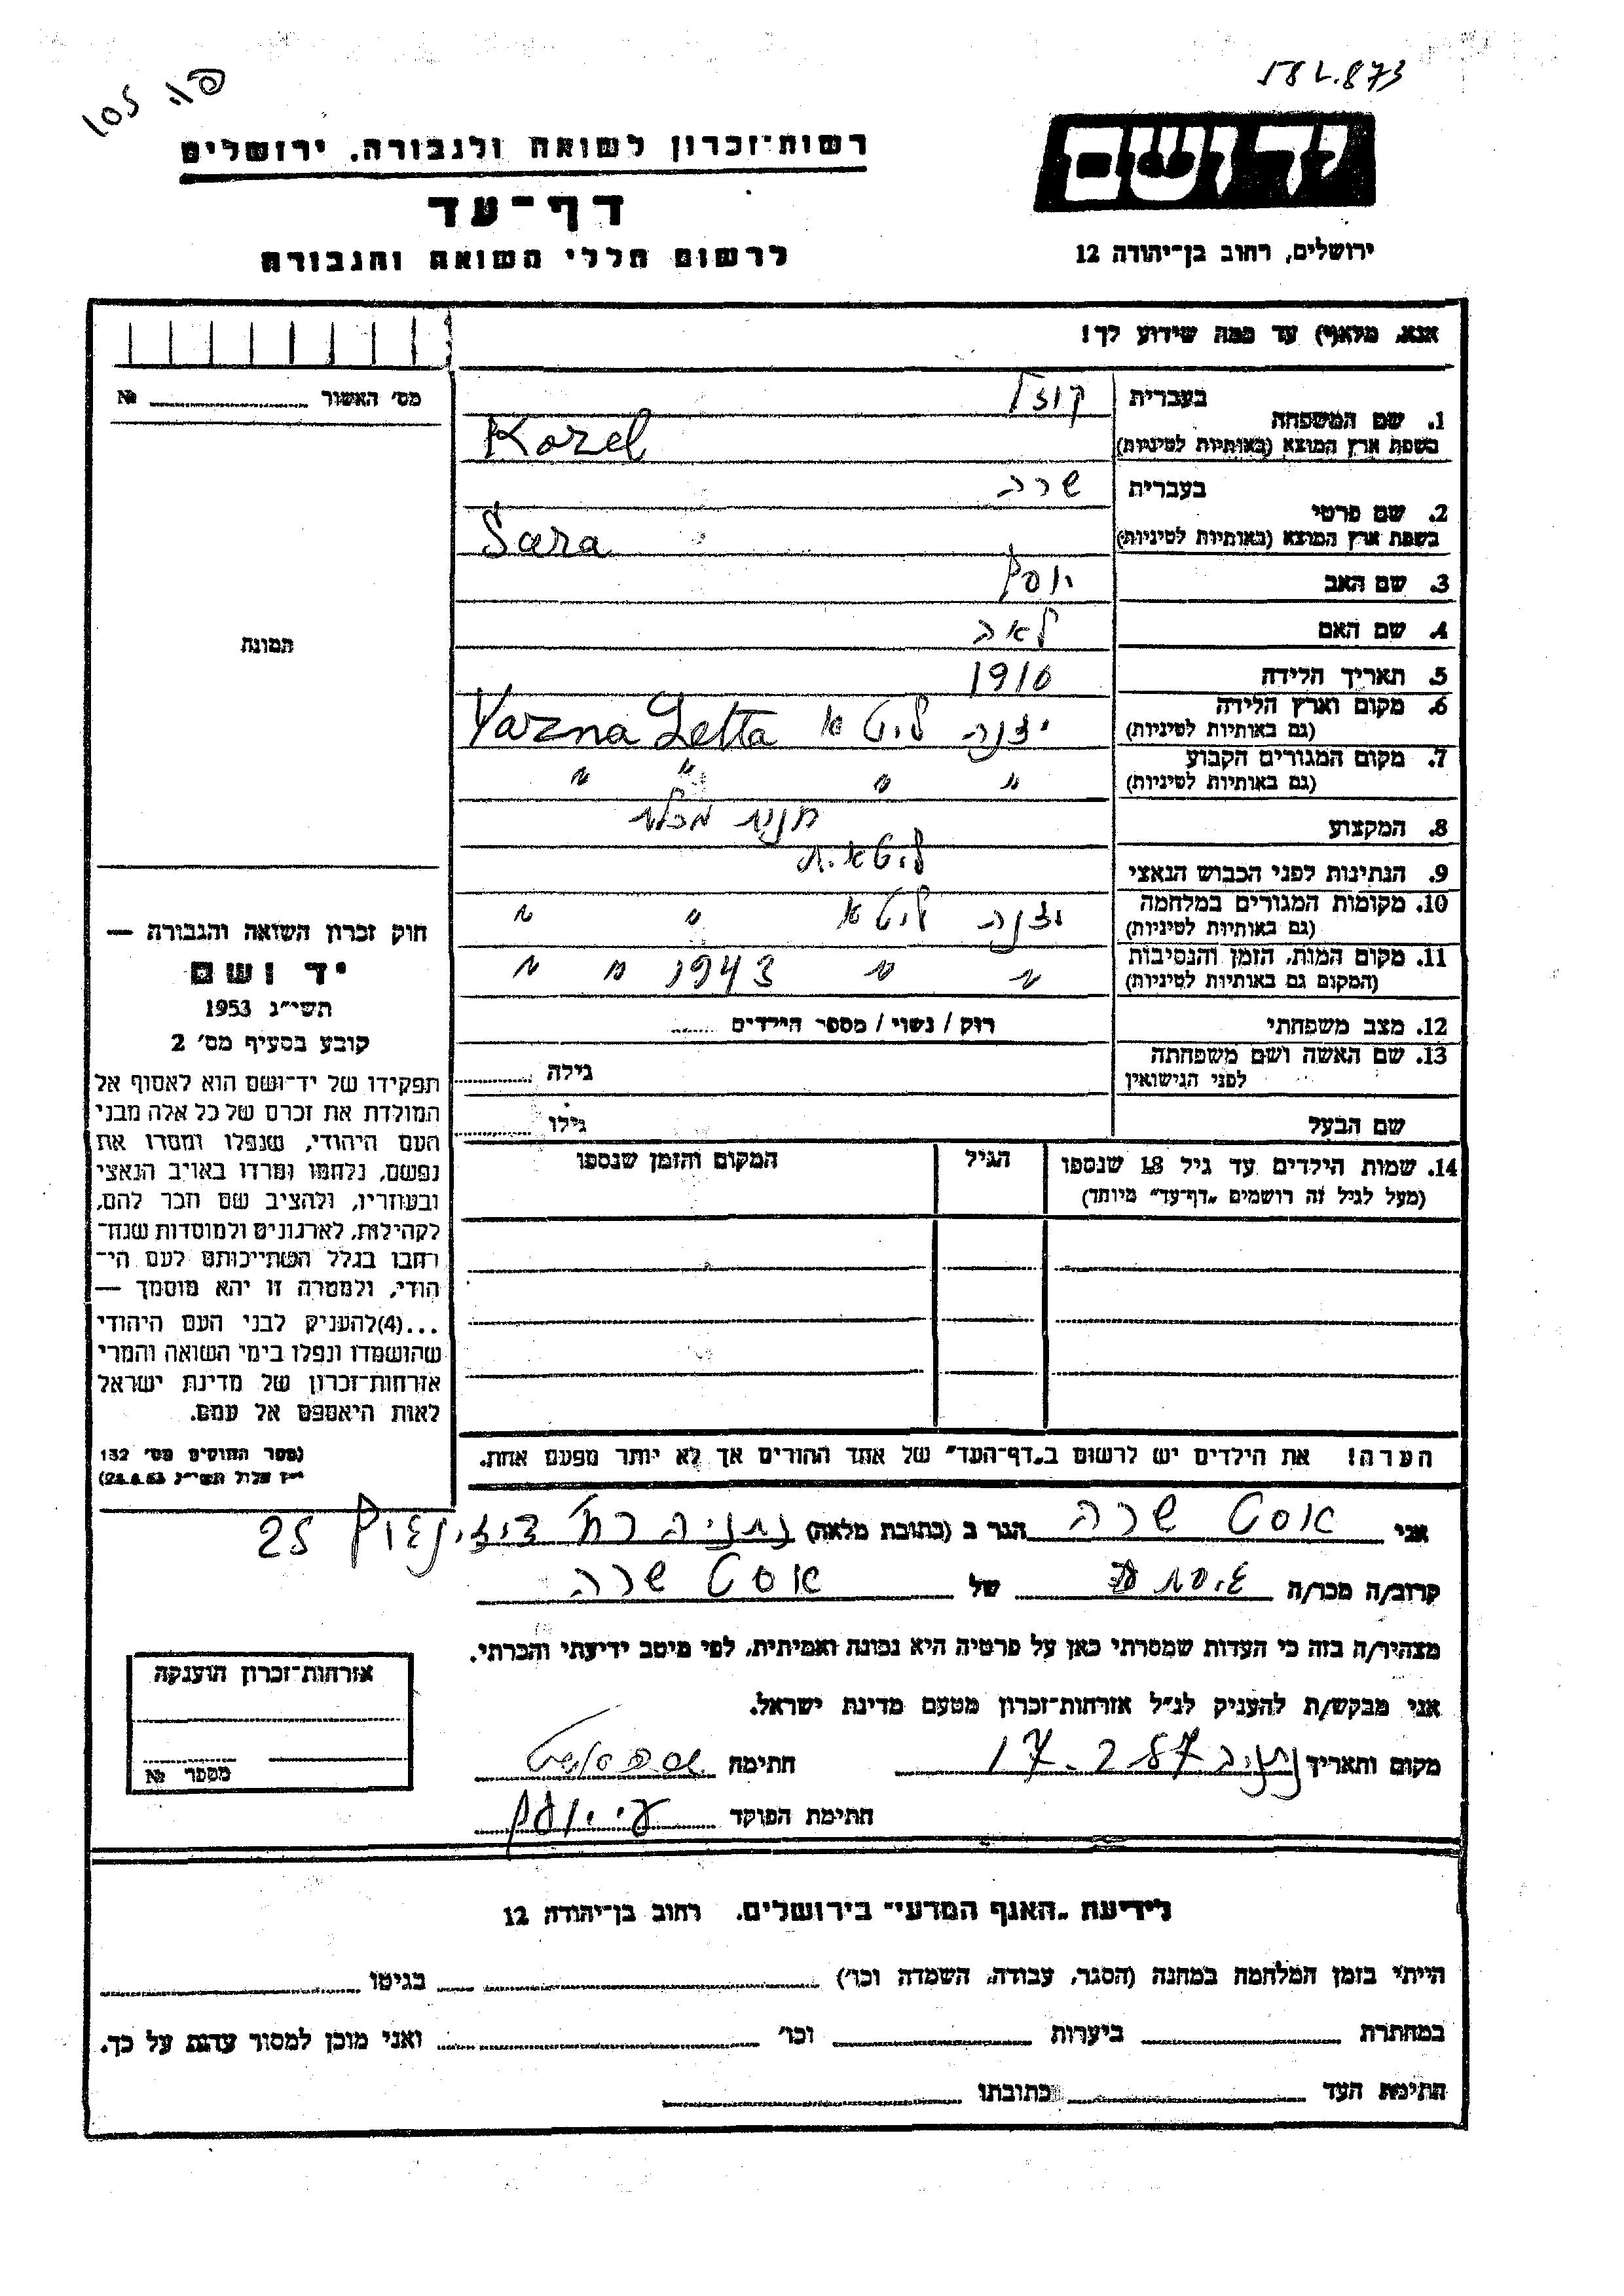 פה. 105
582.873
רשות־זכרון לשואה ולגבורה, ירושלים
דף־עד
לרשום חללי השואה והגבורה
יד ושם
ירושלים, רחוב בן־יהודה 12
אנא, מלא(י) עד כמה שידוע לך!
מס׳ האשור № ........
1. שם המשפחה
בעברית קוזל
בשפת ארץ המוצא (באותיות לטיניות) Kozel
2. שם פרטי
בעברית שרה
בשפת ארץ המוצא (באותיות לטיניות) Sara
3. שם האב יוסף
4. שם האם לאה
5. תאריך הלידה 1910
6. מקום וארץ הלידה יזנה ליטא Yazna Letta
(גם באותיות לטיניות)
7. מקום המגורים הקבוע " " " "
(גם באותיות לטיניות)
8. המקצוע חנות מכולת
9. הנתינות לפני הכבוש הנאצי ליטאית
10. מקומות המגורים במלחמה יזנה ליטא " "
(גם באותיות לטיניות)
11. מקום המות, הזמן והנסיבות " " 1943 " "
(המקום גם באותיות לטיניות)
12. מצב משפחתי רוק / נשוי / מספר הילדים ........
13. שם האשה ושם משפחתה
לפני הנישואין
גילה ........
שם הבעל גילו ........
14. שמות הילדים עד גיל 18 שנספו
(מעל לגיל זה רושמים „דף־עד" מיוחד)
הגיל
המקום והזמן שנספו
הערה! את הילדים יש לרשום ב„דף־העד" של אחד ההורים אך לא יותר מפעם אחת.
התמונה
חוק זכרון השואה והגבורה —
יד ושם
תשי״ג 1953
קובע בסעיף מס׳ 2
תפקידו של יד־ושם הוא לאסוף אל
המולדת את זכרם של כל אלה מבני
העם היהודי, שנפלו ומסרו את
נפשם, נלחמו ומרדו באויב הנאצי
ובעוזריו, ולהציב שם וזכר להם,
לקהילות, לארגונים ולמוסדות שנח־
רחבו בגלל השתייכותם לעם הי־
הודי, ולמטרה זו יהא מוסמך —
...(4)להעניק לבני העם היהודי
שהושמדו ונפלו בימי השואה והמרי
אזרחות־זכרון של מדינת ישראל
לאות היאספם אל עמם.
(ספר החוקים מס׳ 132
י״ז אלול תשי״ג 28.8.53)
אני אוסט שרה הגר ב (כתובת מלאה) נתניה רח׳ דיזינגוף 25
קרוב/ה מכר/ה גיסתה של אוסט שרה
מצהיר/ה בזה כי העדות שמסרתי כאן על פרטיה היא נכונה ואמיתית, לפי מיטב ידיעתי והכרתי.
אני מבקש/ת להעניק לנ״ל אזרחות־זכרון מטעם מדינת ישראל.
מקום ותאריך נתניה 17.2.87 חתימה
חתימת הפוקד
אזרחות־זכרון הוענקה
מספר №
לידיעת „האגף המדעי" בירושלים, רחוב בן־יהודה 12
הייתי בזמן המלחמה במחנה (הסגר, עבודה, השמדה וכו׳) ........ בגיטו ........
במחתרת ........ ביערות ........ וכו׳ ........ ואני מוכן למסור עדות על כך.
חתימת העד ........ כתובתו ........